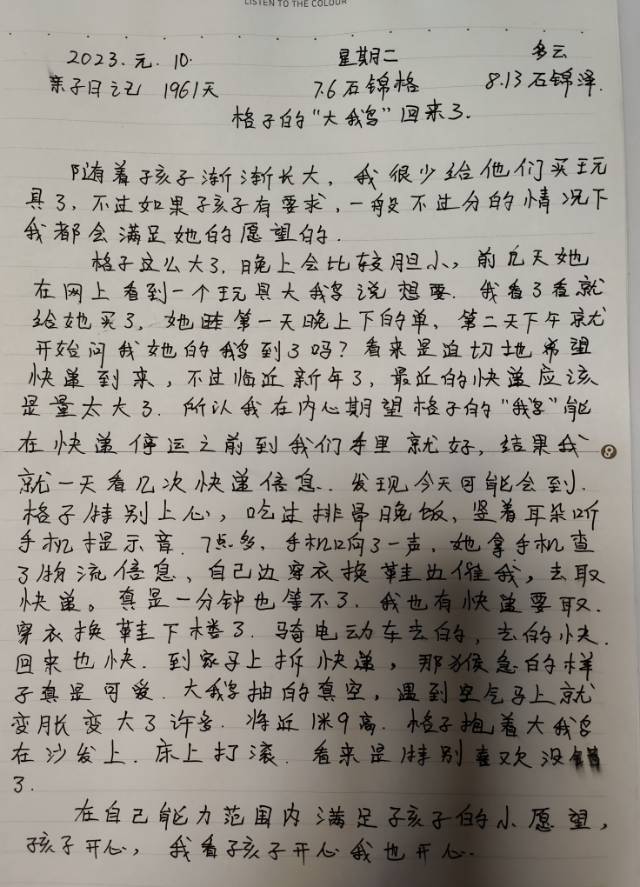 LISTEN TO THE COLOUR
2023.元.10. 星期二 多云
亲子日记 1961天 7.6石锦格 8.13石锦泽.
格子的“大鹅”回来了.
随着孩子渐渐长大，我很少给他们买玩
具了，不过如果孩子有要求，一般不过分的情况下
我都会满足她的愿望的.
格子这么大了.晚上会比较胆小，前几天她
在网上看到一个玩具大鹅说想要.我看了看就
给她买了，她眭第一天晚上下的单，第二天下午就
开始问我她的鹅到了吗？看来是迫切地希望
快递到来，不过临近新年了，最近的快递应该
是量太大了.所以我在内心期望格子的“鹅”能
在快递停运之前到我们手里就好，结果我
就一天看几次快递信息.发现今天可能会到.
格子特别上心，吃过排骨晚饭，竖着耳朵听
手机提示音.7点多，手机响了一声，她拿手机查
了物流信息、自己边穿衣换鞋边催我，去取
快递。真是一分钟也等不了.我也有快递要取.
穿衣换鞋下楼了.骑电动车去的，去的快.
回来也快.到家马上拆快递，那猴急的样
子真是可爱.大鹅抽的真空，遇到空气马上就
变胀变大了许多.将近1米9高.格子抱着大鹅
在沙发上.床上打滚.看来是特别喜欢没错
了.
在自己能力范围内满足孩子的小愿望，
孩子开心，我看孩子开心我也开心.